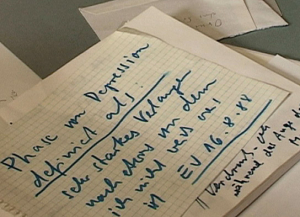 Phase von Depression
definiert als
sehr starkes Verlangen
nach etwas von dem
ich nicht weiss was
ist
EV 16.8.88
während des